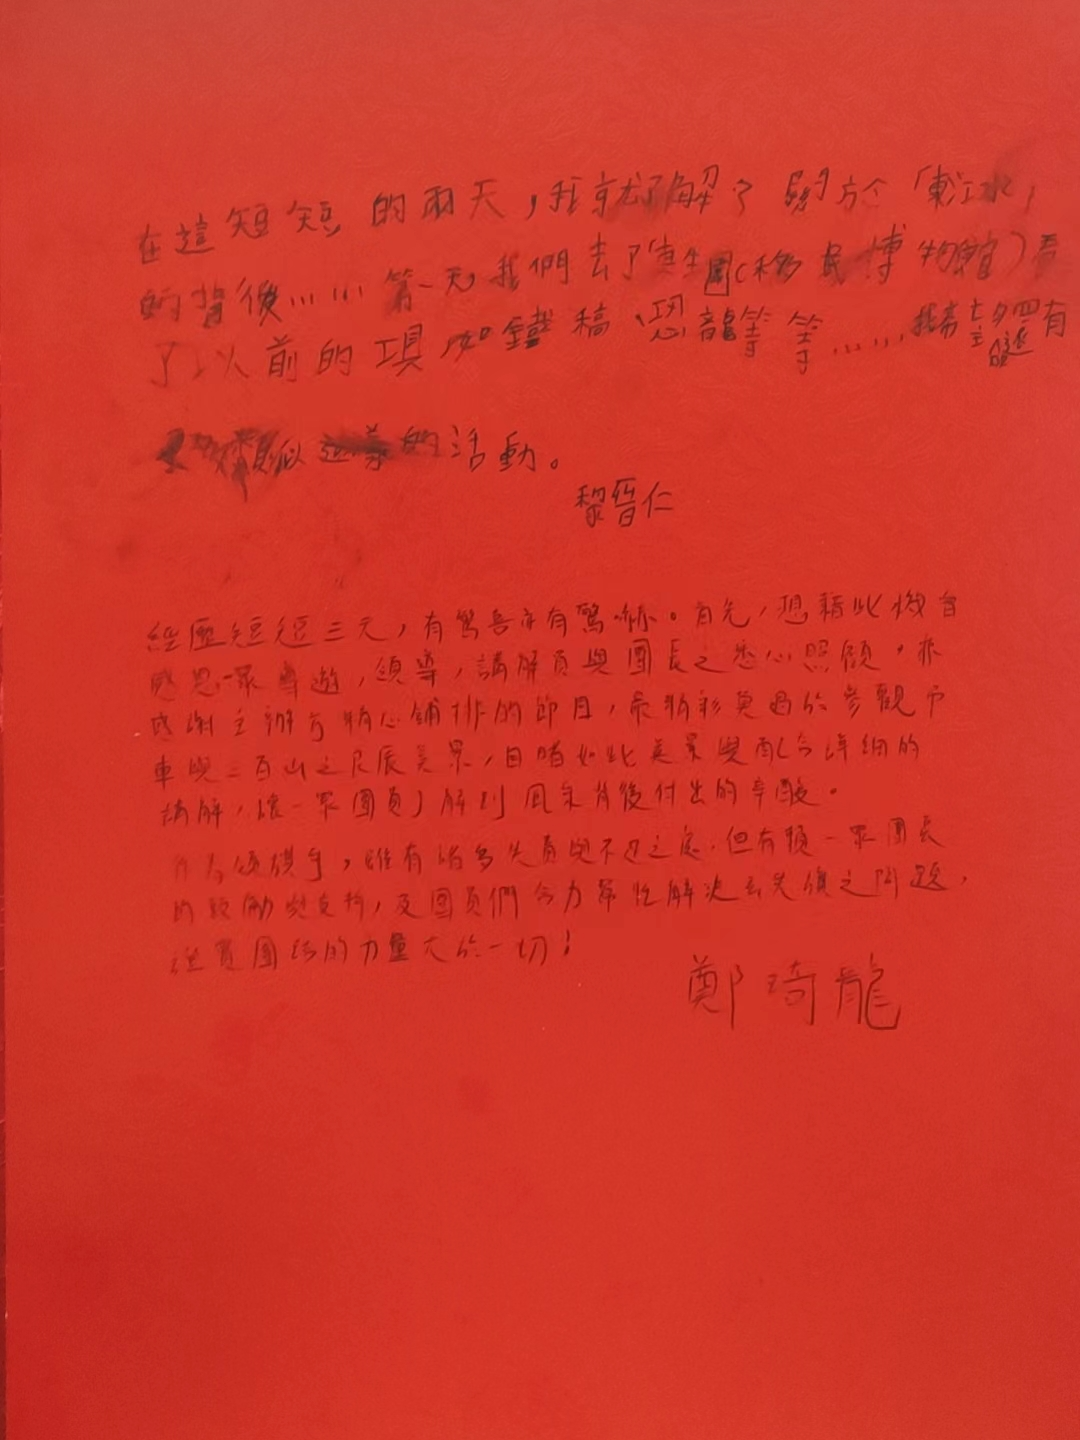 在這短短的兩天，我就了解了關於「東江水」
的背後……第一天我們去了(移民博物館)看
了以前的工具，如鐵稿、恐龍等等……我希望還有
類似的活動。
黎晉仁
經歷短短三天，有驚喜亦有驚嚇。首先，想藉此機會
感恩一眾導遊，領導，講解員與團長之悉心照顧，亦
感謝主辦方精心鋪排的節目，最精彩莫過於參觀
車與三百山之美景，目睹如此美景與配合詳細的
講解，讓一眾團員了解到背後付出的辛酸。
作為領旗手，雖有諸多失責與不足之處，但有賴一眾團長
的鼓勵與支持，及團員們合力幫忙解決之問題，
團結的力量大於一切！
鄭琦龍